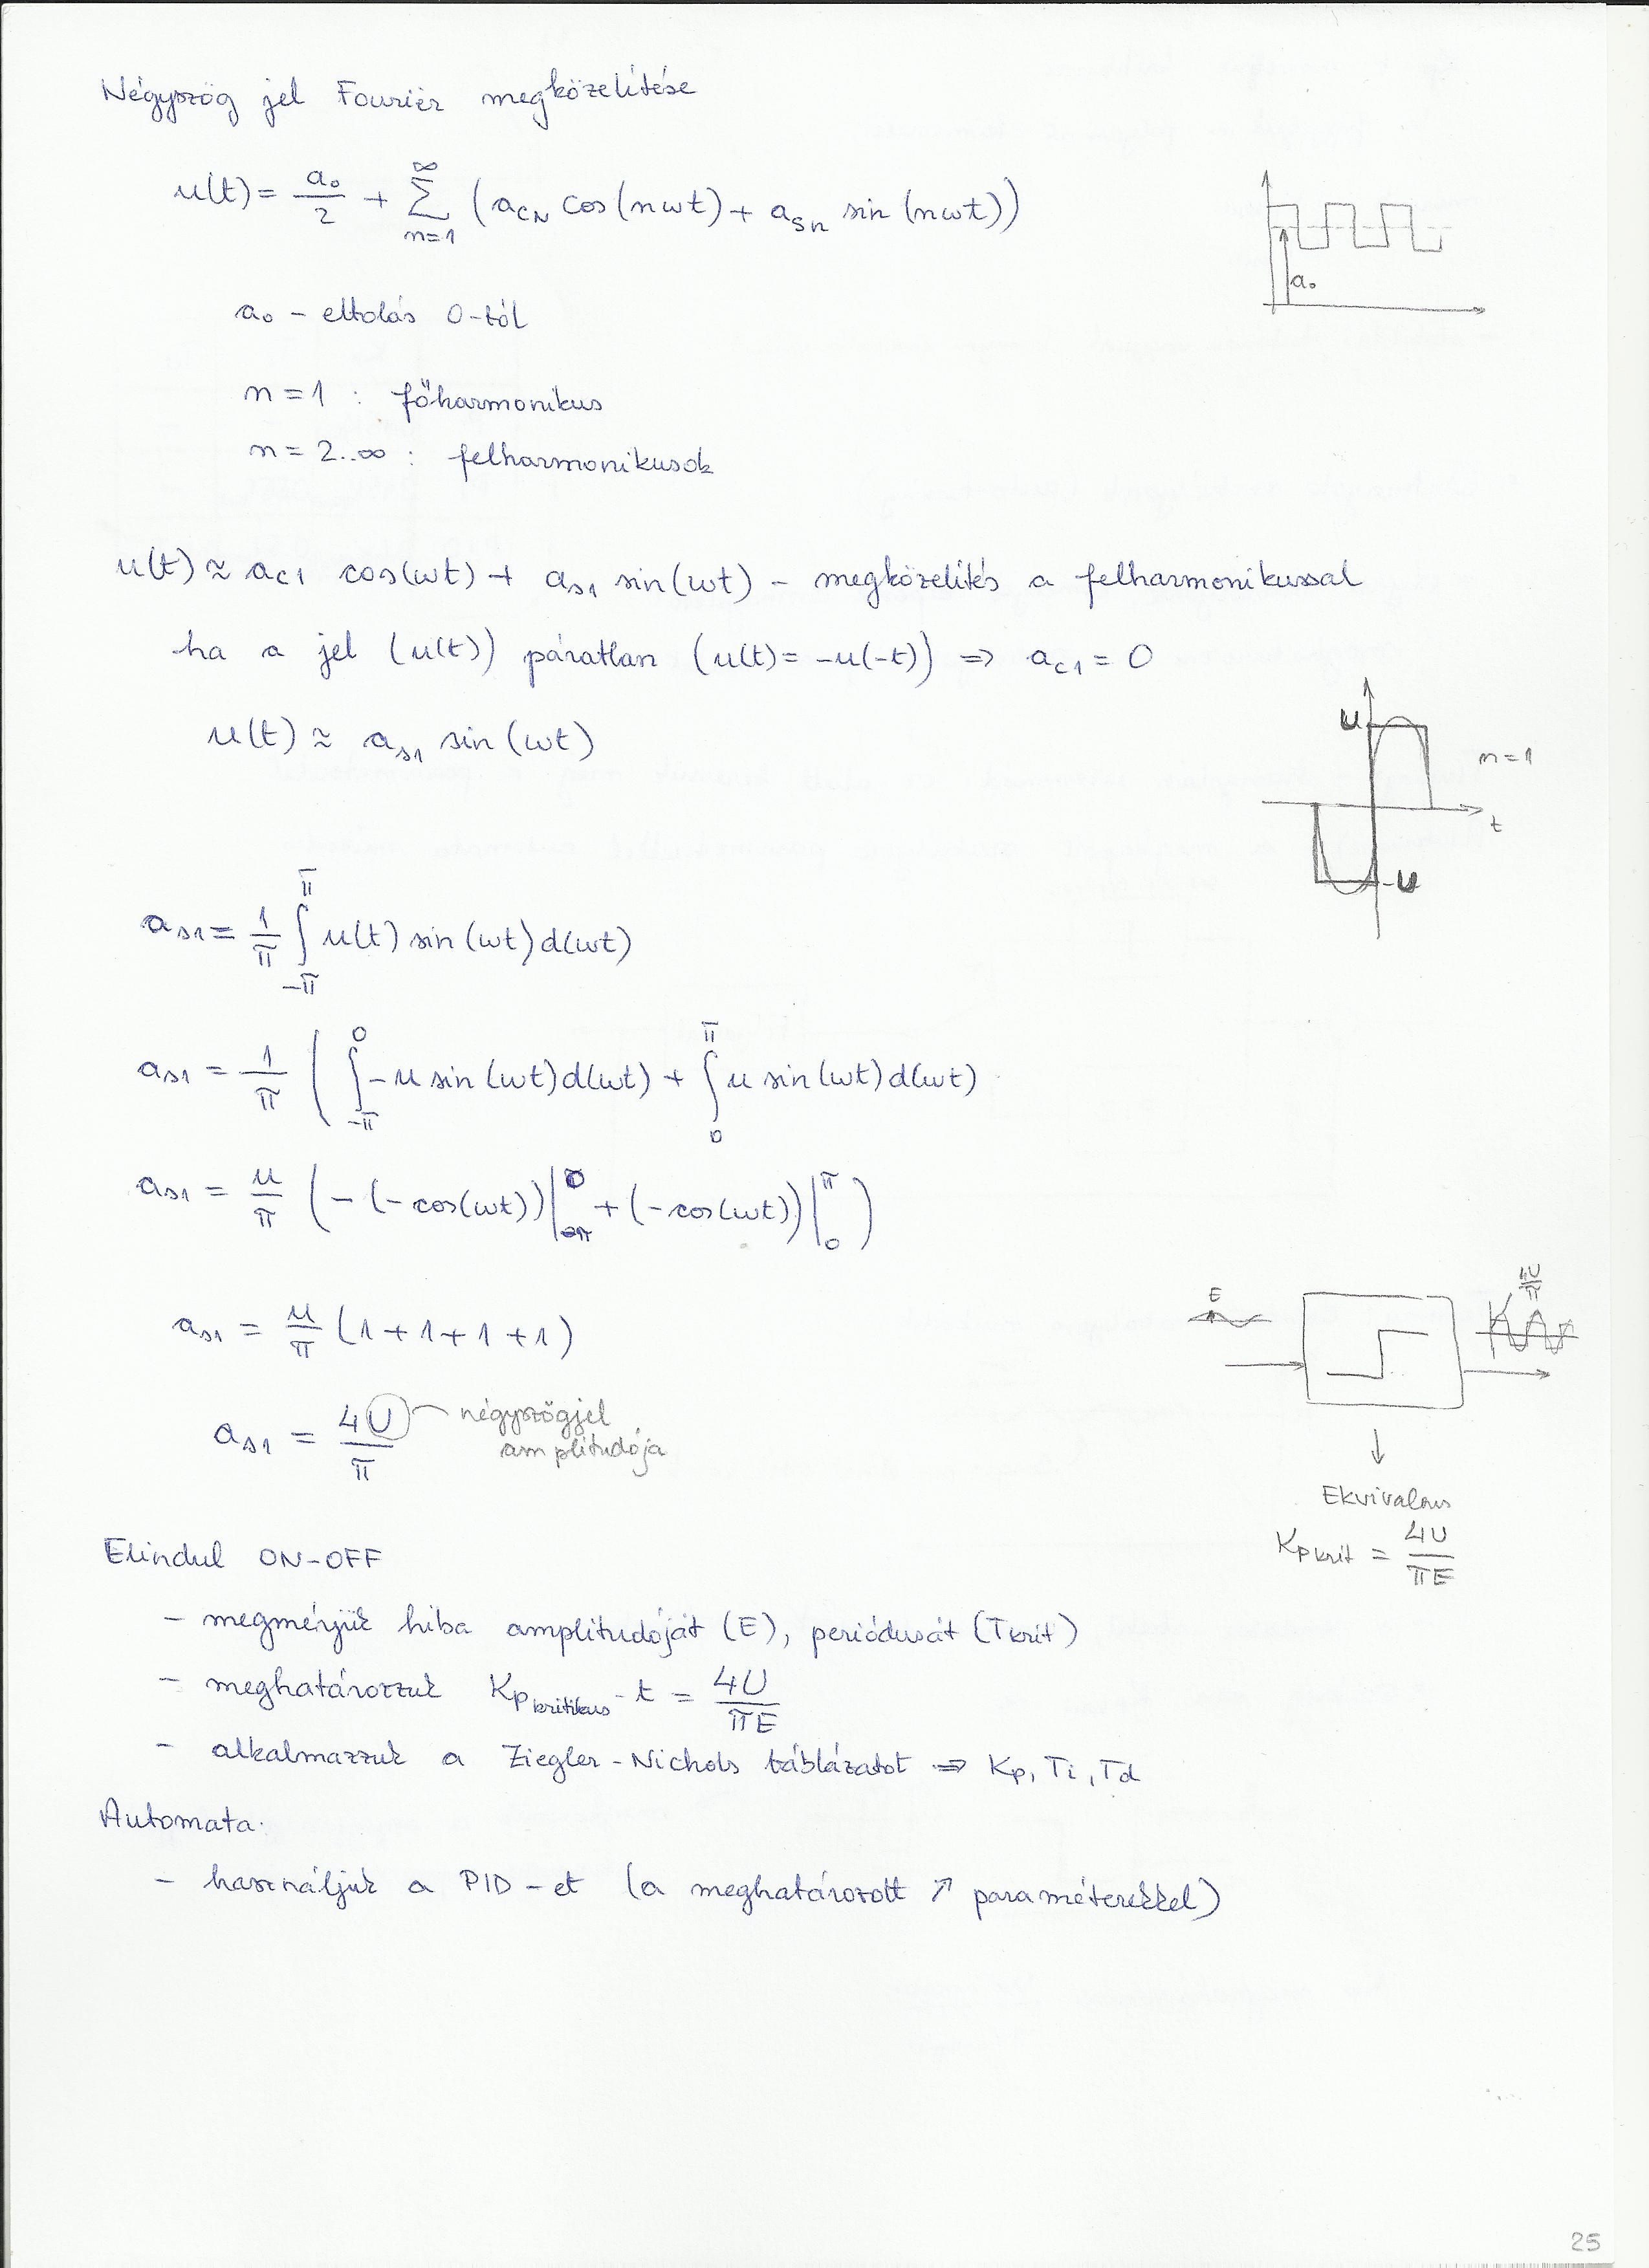 Négyszög jel Fourier megközelítése
u(t) = a₀/2 + ∑_{n=1}^{∞} (a_{CN} cos(nωt) + a_{Sn} sin(nωt))
a₀
a₀ - eltolás 0-tól
n = 1 : főharmonikus
n = 2..∞ : felharmonikusok
u(t) ≈ a_{C1} cos(ωt) + a_{s1} sin(ωt) - megközelítés a felharmonikussal
ha a jel (u(t)) páratlan (u(t) = -u(-t)) ⇒ a_{C1} = 0
u(t) ≈ a_{s1} sin(ωt)
U
n=1
t
-U
a_{s1} = 1/π ∫_{-π}^{π} u(t) sin(ωt) d(ωt)
a_{s1} = 1/π ( ∫_{-π}^{0} -u sin(ωt) d(ωt) + ∫_{0}^{π} u sin(ωt) d(ωt)
a_{s1} = u/π (-(-cos(ωt))|_{-π}^{0} + (-cos(ωt))|_{0}^{π})
a_{s1} = u/π (1+1+1+1)
E
4U/π
a_{s1} = 4U/π négyszögjel
amplitudója
Ekvivalens
K_{p krit} = 4U/πE
Elindul ON-OFF
- megmérjük hiba amplitudóját (E), periódusát (T_{krit})
- meghatározzuk K_{p kritikus}-t = 4U/πE
- alkalmazzuk a Ziegler-Nichols táblázatot ⇒ Kp, Ti, Td
Automata.
- használjuk a PID-et (a meghatározott ↗ paraméterekkel)
25